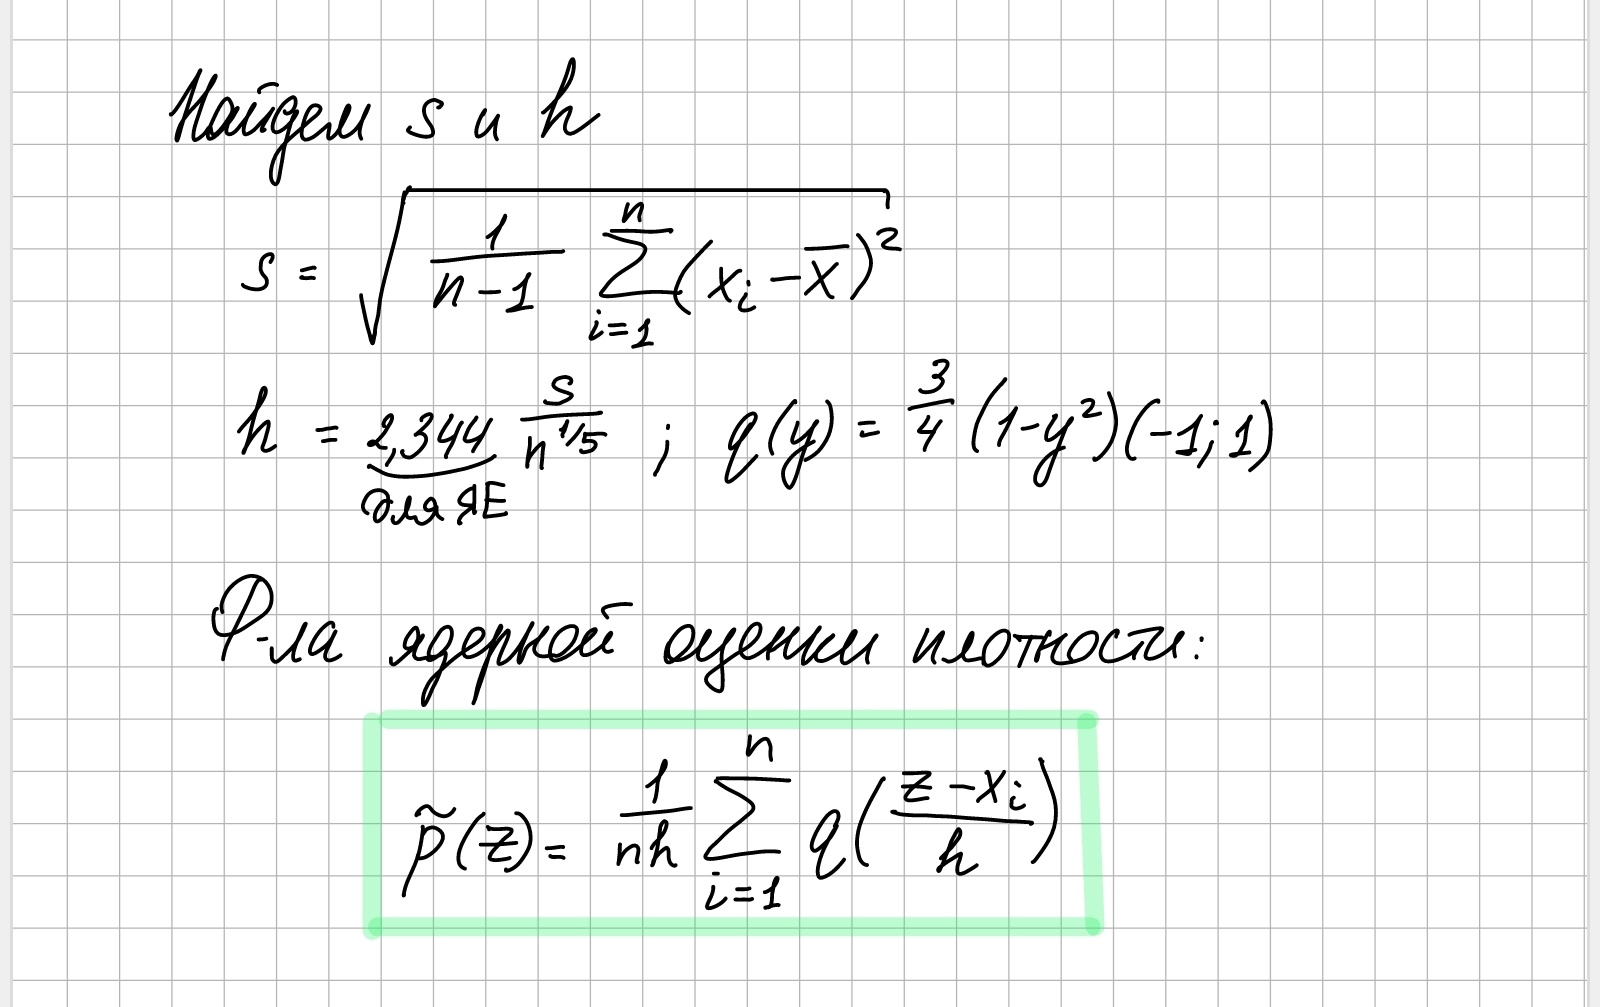 Найдем s и h
s = √(1/(n-1) ∑_{i=1}^{n} (x_i - x̅)²)
h = 2,344 s/n^{1/5} ; q(y) = 3/4 (1-y²)(-1;1)
для ЯЕ
Ф-ла ядерной оценки плотности:
p̃(z) = 1/(nh) ∑_{i=1}^{n} q((z-x_i)/h)